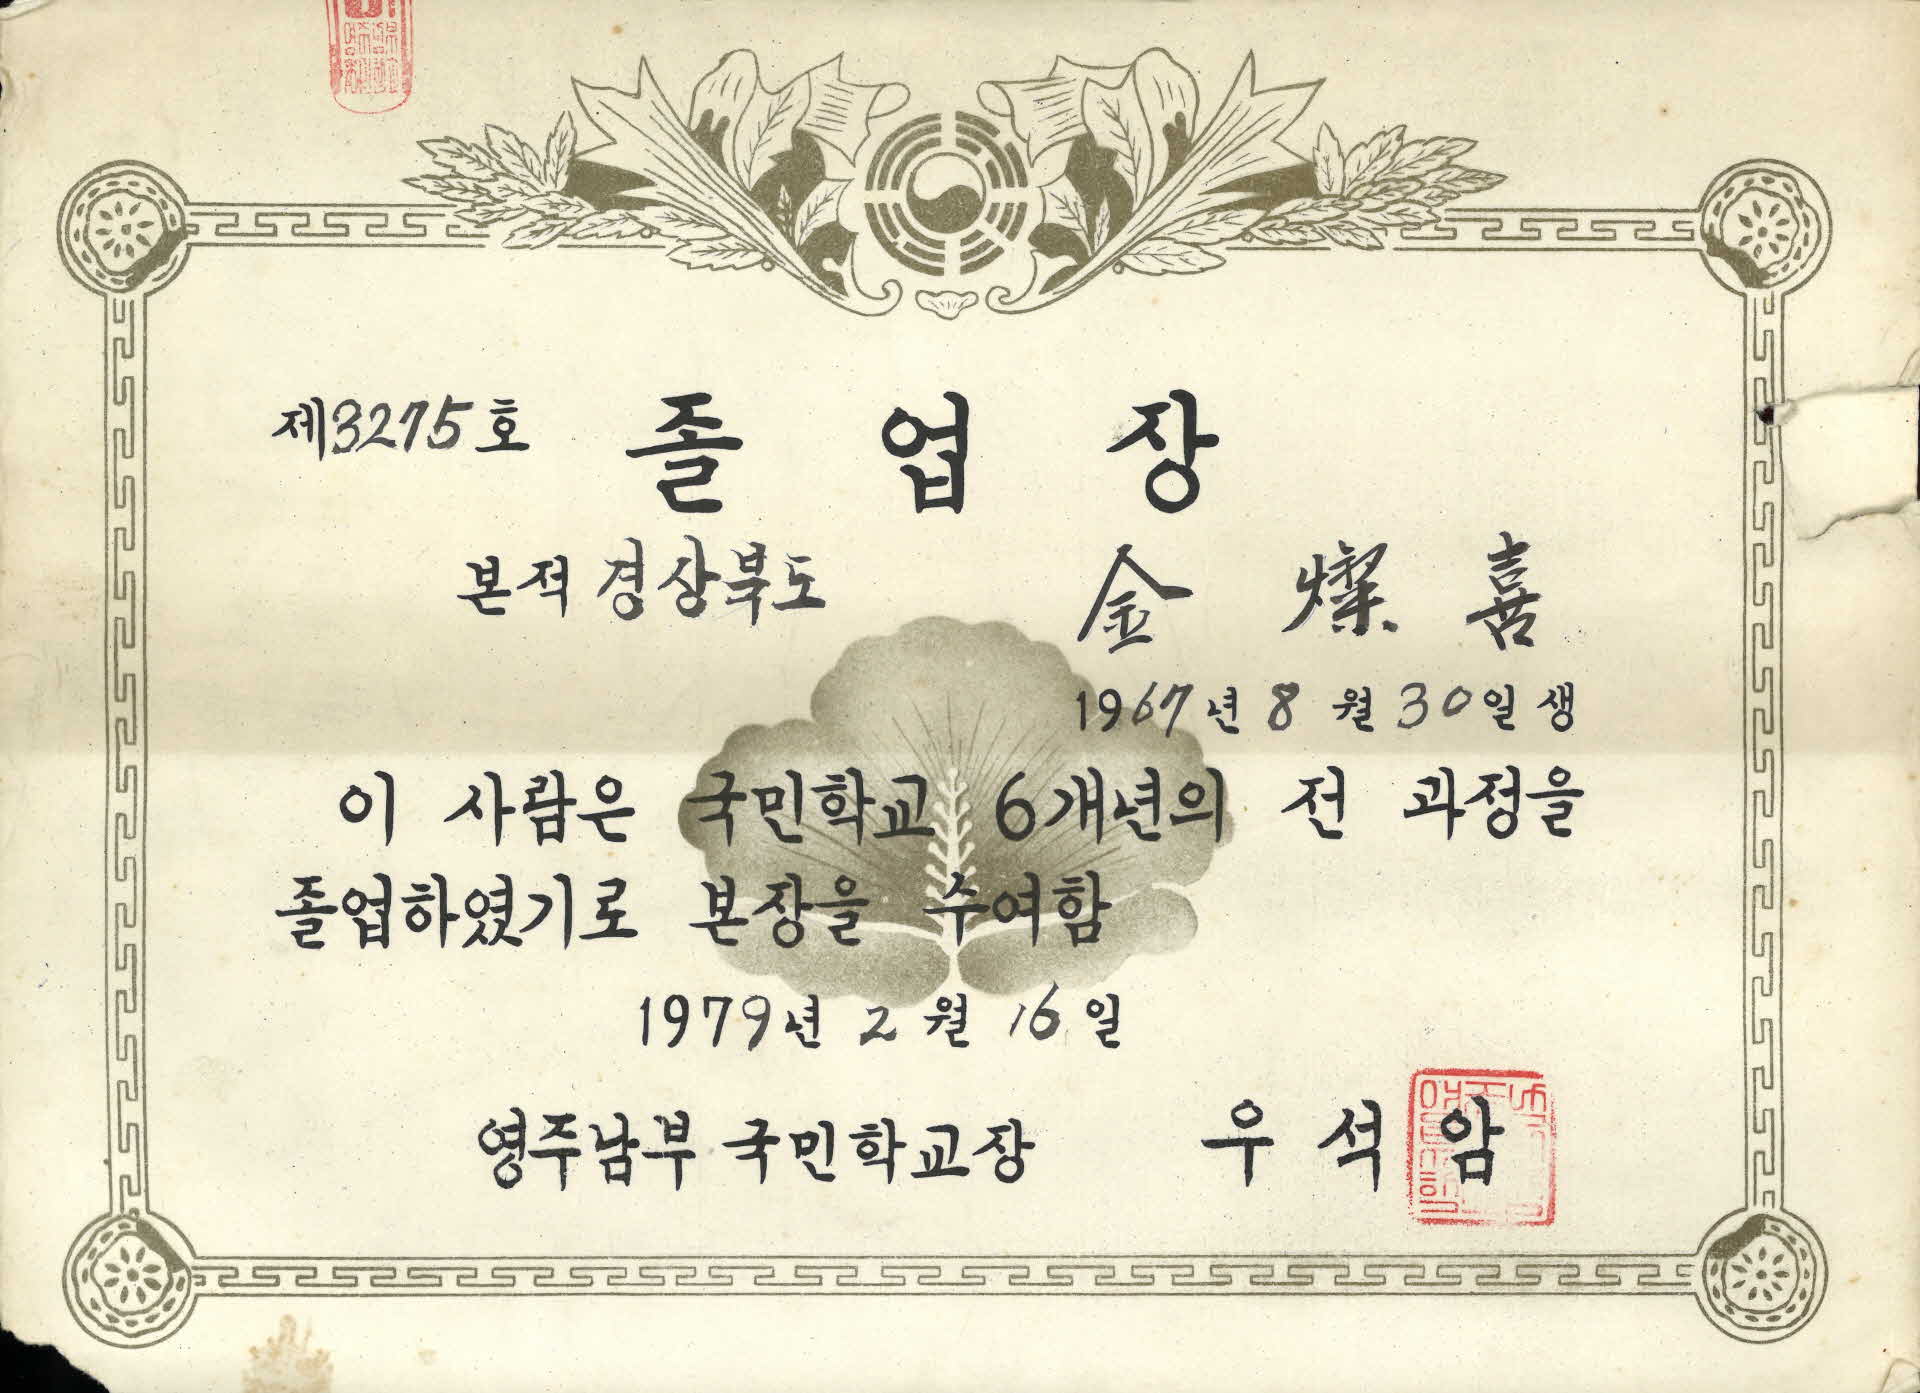 제3275호 졸업장
본적 경상북도 金燦喜
1967년 8월 30일생
이 사람은 국민학교 6개년의 전 과정을
졸업하였기로 본장을 수여함
1979년 2월 16일
영주남부 국민학교장 우석암